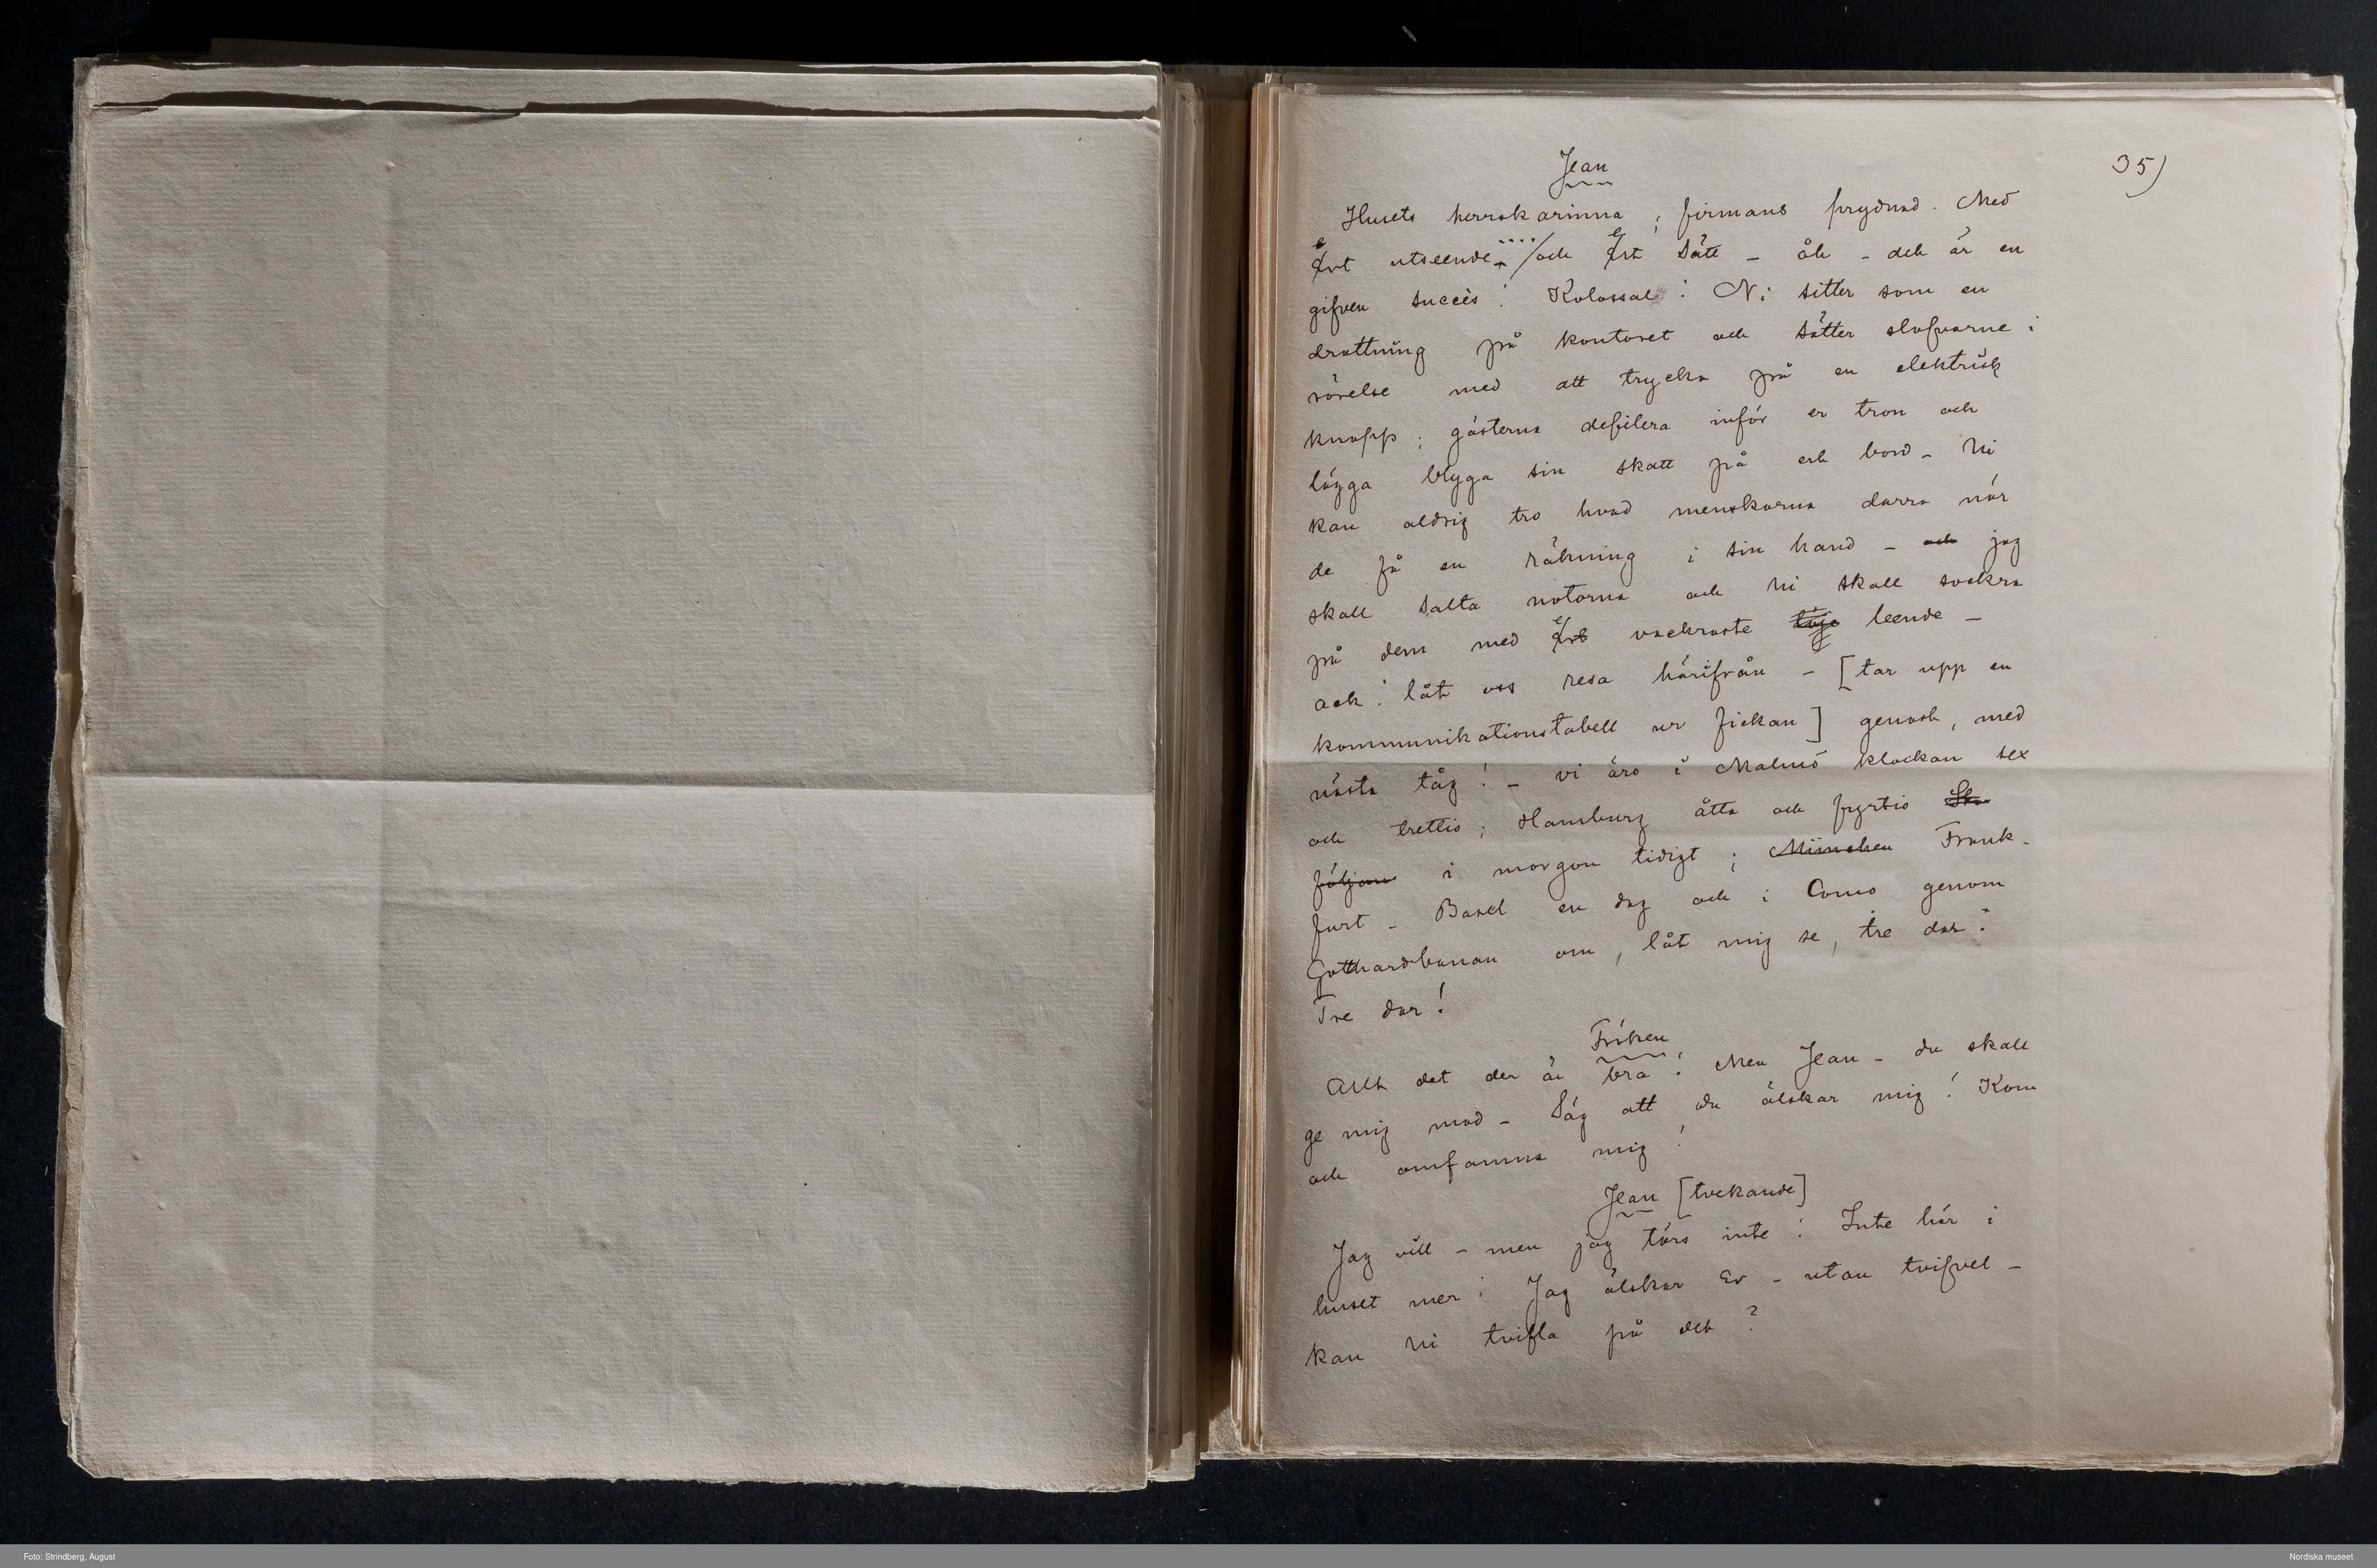 35)
Jean
Husets herrskarinna; firmans prydnad. Med
ert utseende.... och ert sätt - åh - det är en
gifven succès! Kolossal! Ni sitter som en
drottning på kontoret och sätter slafvarne i
rörelse med att trycka på en elektrisk
knapp; gästerna defilera inför er tron och
lägga blyga sin skatt på ert bord - Ni
kan aldrig tro hvad menskorna darra när
de få en räkning i sin hand - och jag
skall salta notorna och Ni skall sockra
på dem med ert vackraste löje leende -
ack! låt oss resa härifrån - [tar upp en
kommunikationstabell ur fickan] genast, med
nästa tåg! - vi äro i Malmö klockan sex
och trettio; Hamburg åtta och fyrtio
i morgon tidigt; München Frank-
furt - Basel en dag och i Como genom
Gotthardbanan om, låt mig se, tre dar.
Tre dar!
Fröken
Allt det der är bra! Men Jean - du skall
ge mig mod - Säg att du älskar mig! Kom
och omfamna mig!
Jean [tvekande]
Jag vill - men jag törs inte! Inte här i
huset mer! Jag älskar Er - utan tvifvel -
kan Ni tvifla på det?
Foto: Strindberg, August
Nordiska museet